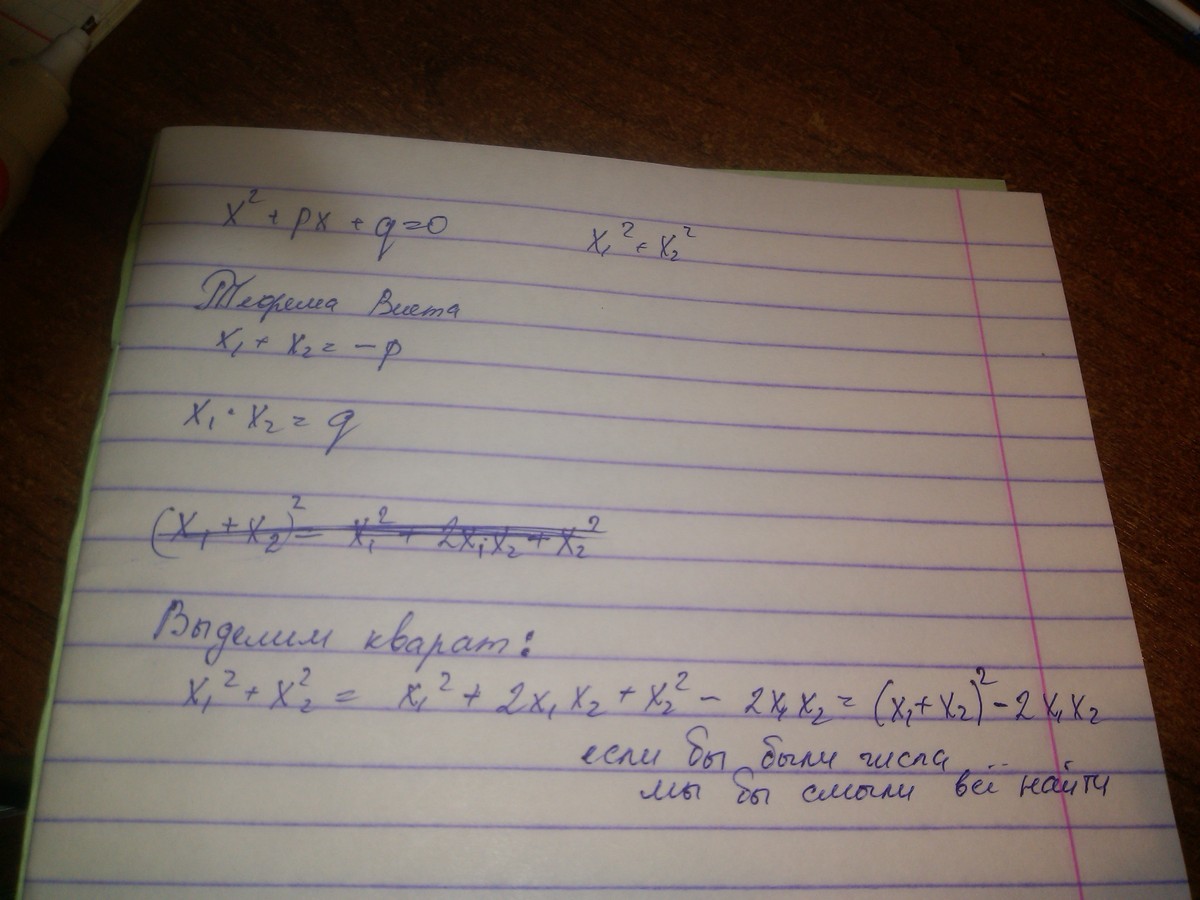 x² + px + q = 0
x₁² + x₂²
Теорема Виета
x₁ + x₂ = -p
x₁ · x₂ = q
(x₁ + x₂)² = x₁² + 2x₁x₂ + x₂²
Выделим кварат:
x₁² + x₂² = x₁² + 2x₁x₂ + x₂² - 2x₁x₂ = (x₁ + x₂)² - 2x₁x₂
если бы были числа
мы бы смыли всё найти